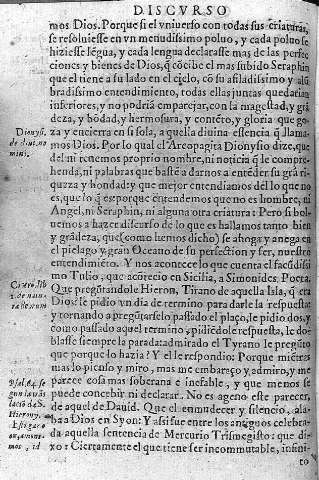 DISCVRSO
mos Dios. Porque si el vniuerso con todas sus criaturas,
se resoluiesse en vn menudissimo poluo, y cada poluo se
hiziesse lẽgua, y cada lengua declarasse mas de las perfec
ciones y bienes de Dios, q̃ cõcibe el mas subido Seraphin
que el tiene a su lado en el cielo, cõ su afiladissimo y al
bradissimo entendimiento, todas ellas juntas quedarian
inferiores, y no podria emparejar, con la magestad, y grã
deza, y bõdad, y hermosura, y contẽto, y gloria que go-
za y encierra en si sola, a quella diuina essencia q̃ llama-
mos Dios. Por lo qual el Areopagita Dionysio dize, que
del ni tenemos proprio nombre, ni noticia q̃ le compre-
henda, ni palabras que bastẽ a darnos a entẽder su grã ri-
quzza y hondad: y que mejor entendiamos del lo que no
es, que lo q̃ es: porque entendemos que no es hombre, ni
Angel, ni Seraphin, ni alguna otra criatura: Pero si bol-
uemos a hazer discurso de lo que es hallamos tanto bien
y grãdeza, que (como hemos dicho) se ahoga y anega en
el pielago y gran Oceano de su perfection y ser, nuestro
entendimiẽto. Y nos acontece lo que cuenta el facũdissi
mo Tulio, que acõtecio en Sicilia, a Simonides, Poeta.
Que pregũtandole Hieron, Tirano de aquella Isla, q̃ era
Dios? le pidio vn dia de termino para darle la respuesta:
y tornando a pregũtarselo passado el plaço, le pidio dos, y
como passado aquel termino, pidiẽdole respuesta, le do-
blasse siempre la parada: admirado el Tyrano le pregũto
que porque lo hazia? Y el le respondio: Porque miẽtras
mas lo pienso y miro, mas me embaraço y admiro, y me
parece cosa mas soberana e inefable, y que menos se
puede concebir ni declarar. No es ageno este parecer,
de aquel de Dauid. Que el enmudecer y silencio, alaba
baa Dios en Syon: Y assi fue entre los antiguos celebra-
da aquella sentencia de Mercurio Trismegisto: que di-
xo: Ciertamente el que tiene ser incommutable, infini-
to
Dionys.
de diui. no
mini.
Cicero, lib
de natu
ra deorum
Psal. 64. se
gun la trãs
laciõ de S.
Hierony.